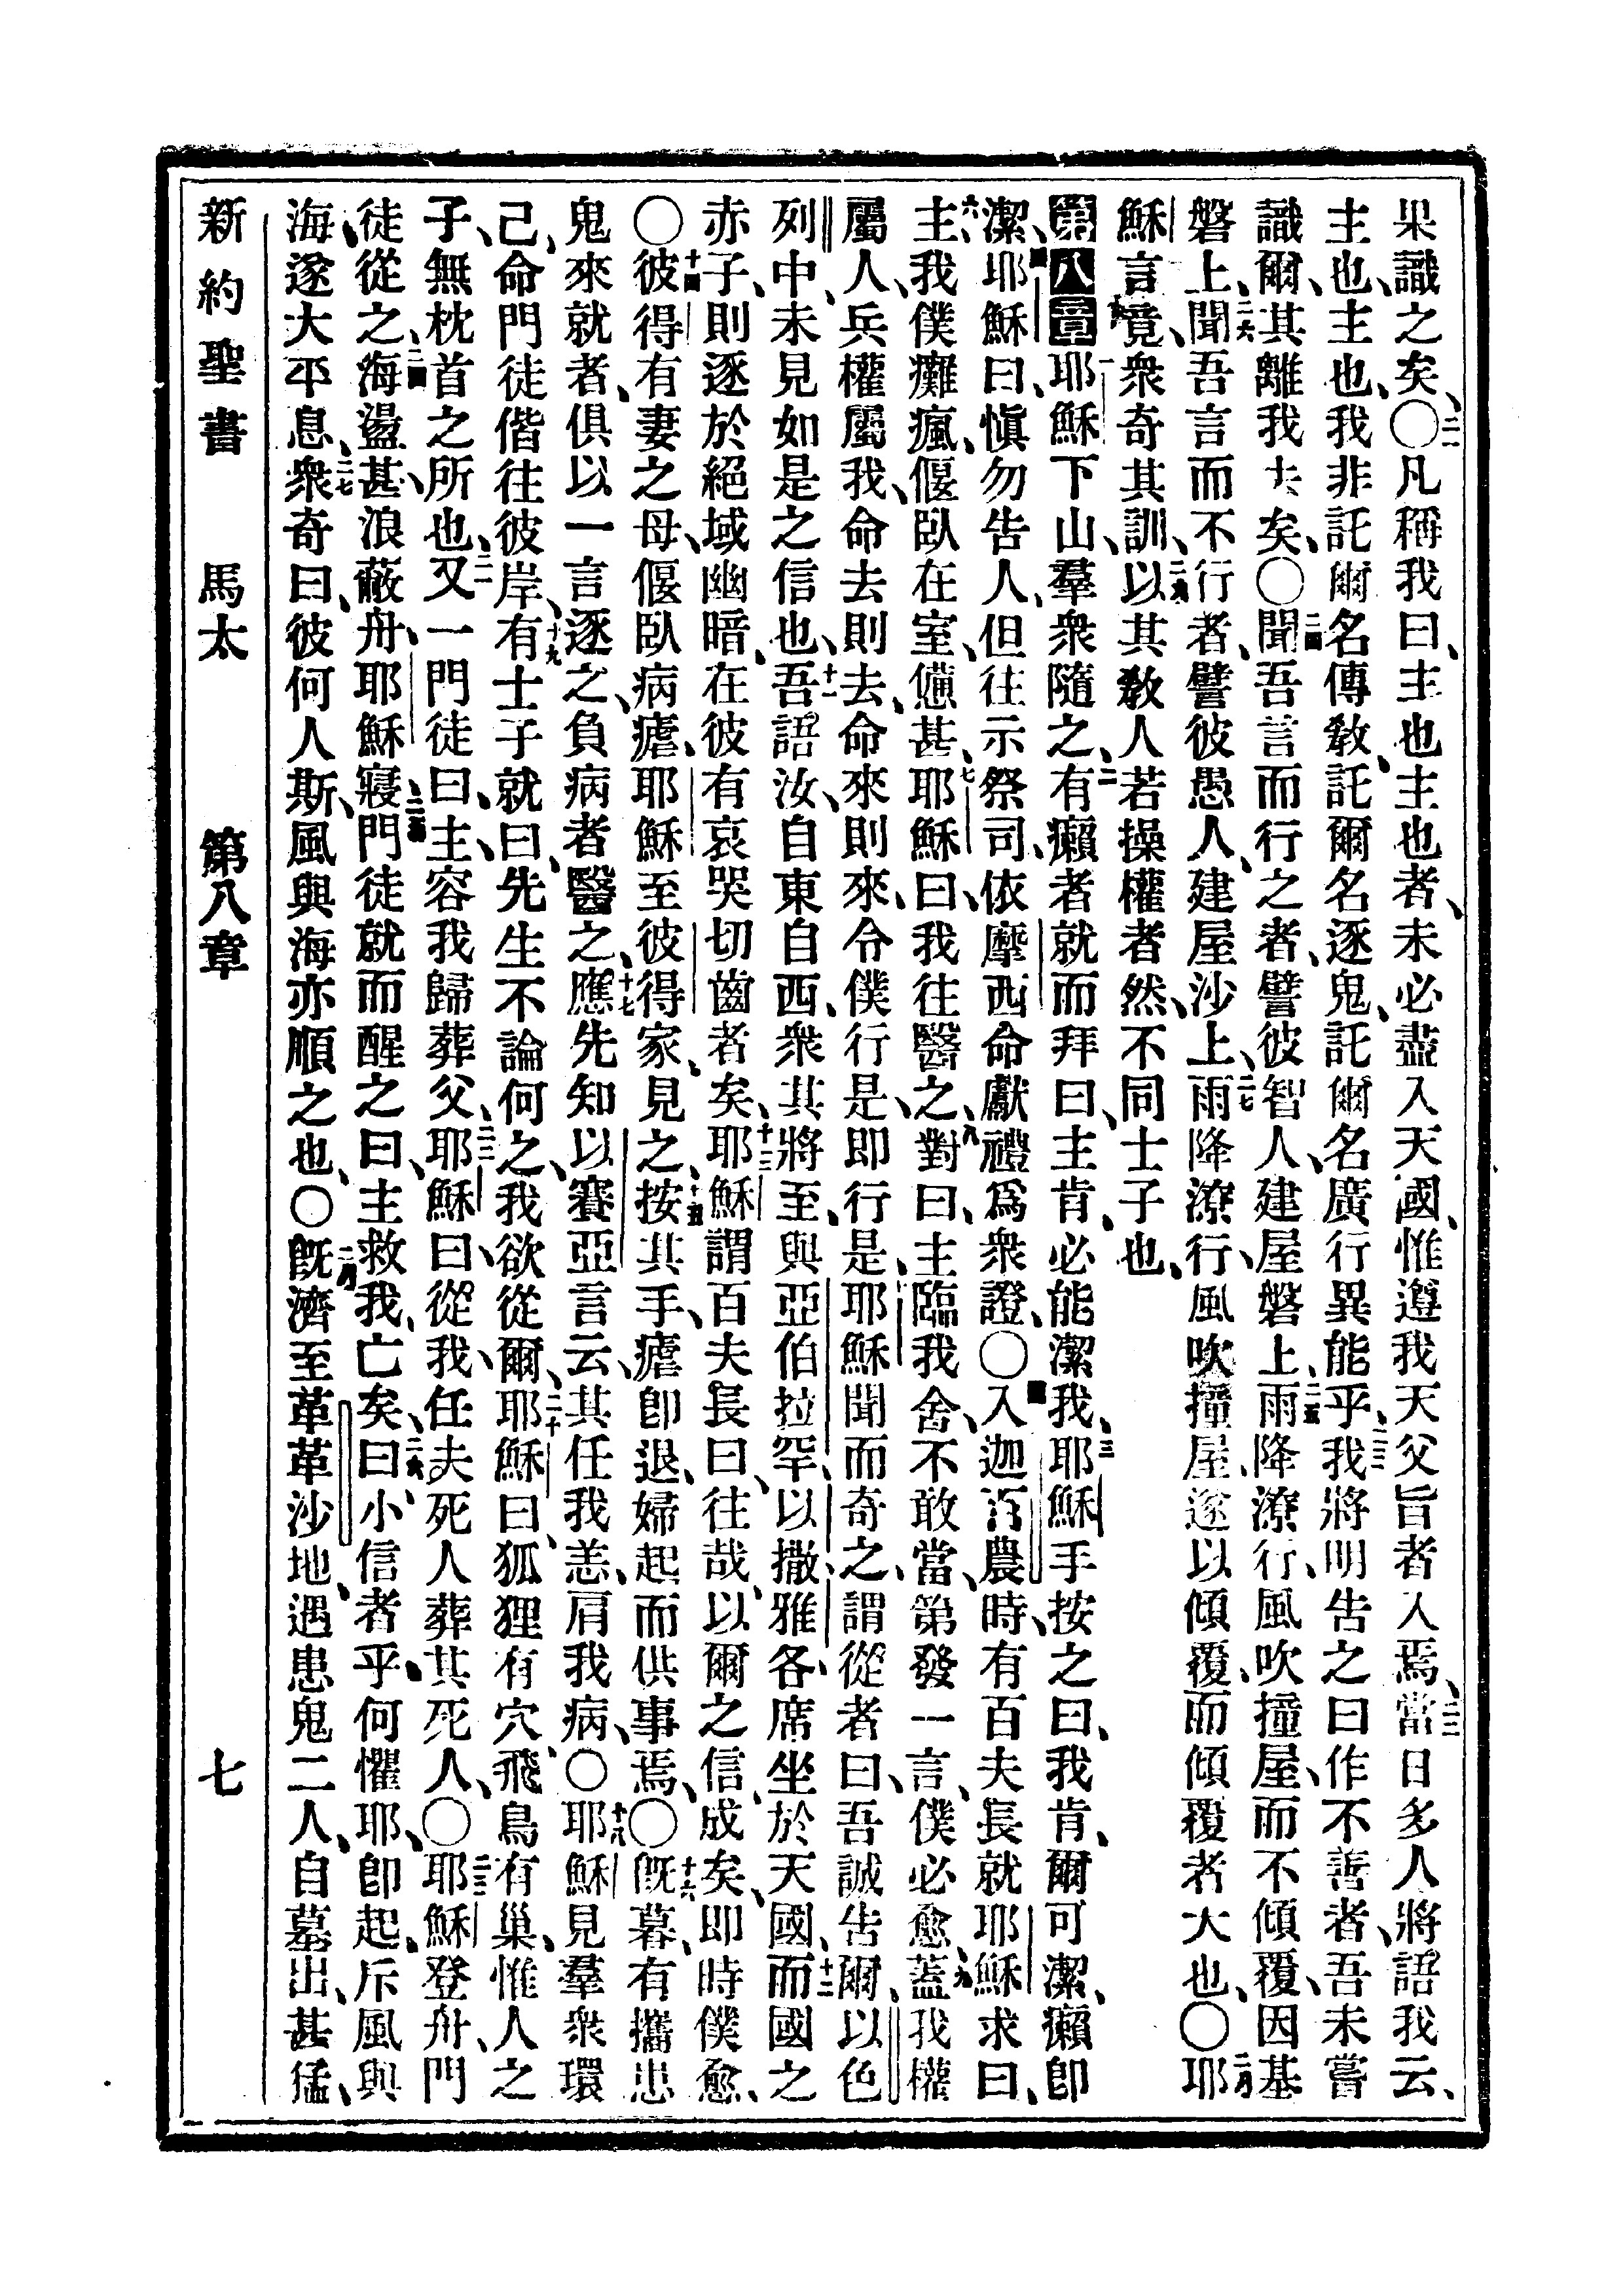 果識之矣、〇二一凡稱我曰、主也主也者、未必盡入天國、惟遵我天父旨者入焉、二二當日多人將語我云、
主也、主也、我非託爾名傳教、託爾名逐鬼、託爾名廣行異能乎、二三我將明告之曰、作不善者、吾未嘗
識爾、其離我去矣、〇二四聞吾言而行之者、譬彼智人、建屋磐上、二五雨降潦行、風吹撞屋、而不傾覆、因基
磐上、二六聞吾言而不行者、譬彼愚人、建屋沙上、二七雨降潦行、風吹撞屋、遂以傾覆、而傾覆者大也、〇二八耶
穌言竟、衆奇其訓、二九以其教人若操權者然、不同士子也、
第八章一耶穌下山、羣衆隨之、二有癩者就而拜曰、主肯、必能潔我、三耶穌手按之曰、我肯、爾可潔、癩卽
潔、四耶穌曰、愼勿告人、但往示祭司、依摩西命獻禮爲衆證、〇五入迦百農時、有百夫長就耶穌求曰、
六主、我僕癱瘋、偃臥在室、憊甚、七耶穌曰、我往醫之、八對曰、主臨我舍、不敢當、第發一言、僕必愈、九蓋我權
屬人、兵權屬我、命去則去、命來則來、令僕行是、即行是、十耶穌聞而奇之、謂從者曰、吾誠告爾、以色
列中、未見如是之信也、十一吾語汝、自東自西、衆其將至、與亞伯拉罕、以撒、雅各、席坐於天國、十二而國之
赤子、則逐於絕域幽暗、在彼有哀哭切齒者矣、十三耶穌謂百夫長曰、往哉、以爾之信、成矣、即時僕愈、
〇十四彼得有妻之母、偃臥病瘧、耶穌至彼得家、見之、十五按其手、瘧卽退、婦起而供事焉、〇十六旣暮、有攜患
鬼來就者、俱以一言逐之、負病者醫之、十七應先知以賽亞言云、其任我恙、肩我病、〇十八耶穌見羣衆環
己、命門徒偕往彼岸、十九有士子就曰、先生不論何之、我欲從爾、二十耶穌曰、狐狸有穴、飛鳥有巢、惟人之
子、無枕首之所也、二一又一門徒曰、主、容我歸葬父、二二耶穌曰、從我、任夫死人葬其死人、〇二三耶穌登舟、門
徒從之、二四海盪甚、浪蔽舟、耶穌寢、二五門徒就而醒之曰、主救我、亡矣、二六曰、小信者乎、何懼耶、卽起、斥風與
海、遂大平息、二七衆奇曰、彼何人斯、風與海亦順之也、〇二八旣濟至革革沙地、遇患鬼二人、自墓出、甚猛、
新約聖書　馬太　第八章　七